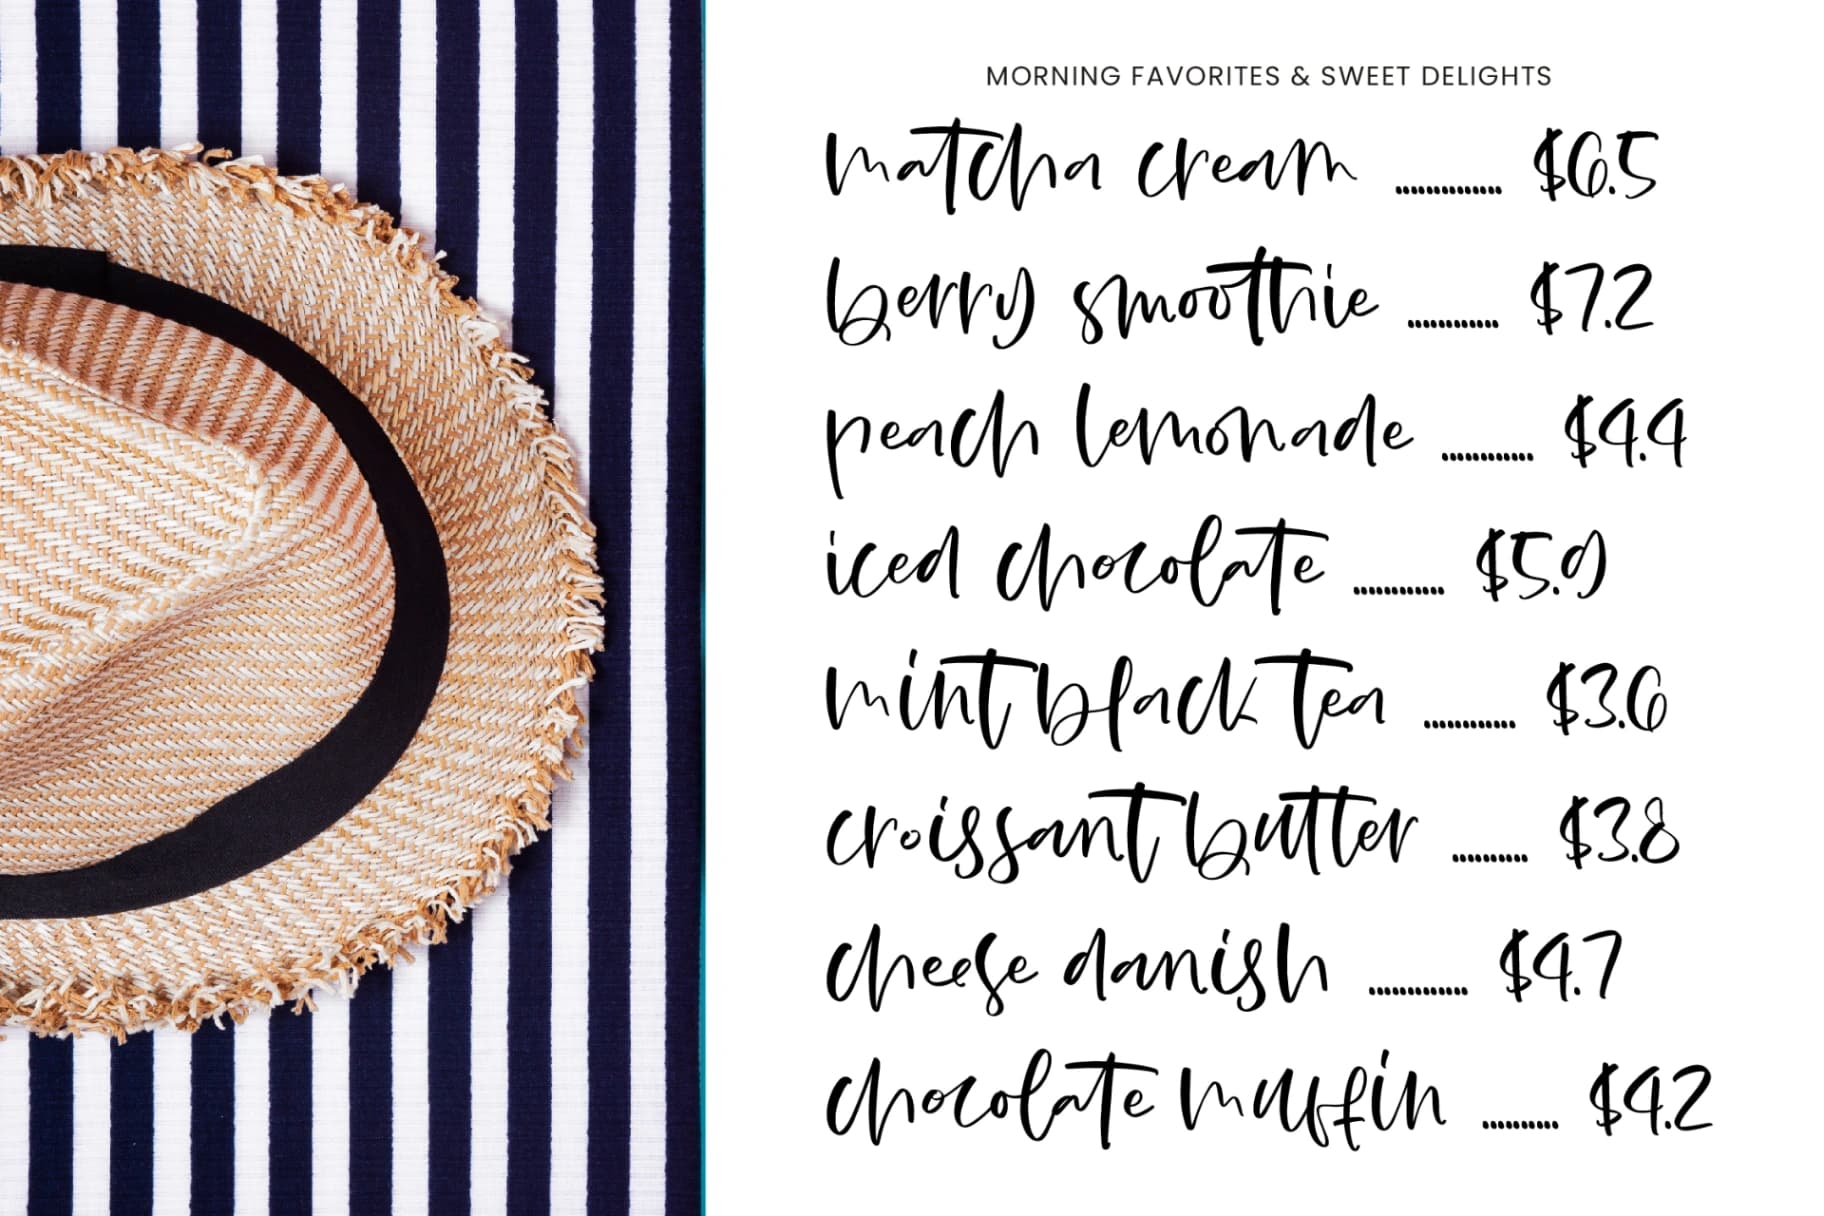 MORNING FAVORITES & SWEET DELIGHTS
matcha cream .............. $6.5
berry smoothie ............ $7.2
peach lemonade ............ $4.4
iced chocolate ............ $5.9
mint black tea ............ $3.6
croissant butter .......... $3.8
cheese danish ............. $4.7
chocolate muffin .......... $4.2